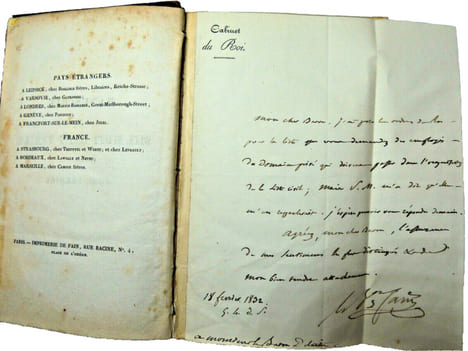 PAYS ÉTRANGERS.
A LEIPSICK, chez Bossange frères, Libraires, Reichs-Strasse;
A VARSOVIE, chez Glucksberg;
A LONDRES, chez Martin Bossange, Great-Marlborough-Street;
A GENÈVE, chez Paschoud;
A FRANCFORT-SUR-LE-MEIN, chez Jugel.
FRANCE.
A STRASBOURG, chez Treuttel et Wurtz; et chez Levrault;
A BORDEAUX, chez Lawalle et Neveu;
A MARSEILLE, chez Camoin frères.
PARIS. — IMPRIMERIE DE FAIN, RUE RACINE, N°. 4,
PLACE DE L'ODÉON.
Cabinet
du Roi.
Mon cher Baron. J'ai pris les ordres du Roi
pour la liste que vous demandez des employés
du Domaine privé qui doivent passer dans l'organisation
de la liste Civile; Mais S. M. m'a dit qu'elle
m'en reparlerait. J'espère pouvoir vous répondre demain.
Agréez, mon cher Baron, l'assurance
de mes sentimens les plus distingués et de
mon bien tendre attachement.
18 février 1832
Le Bon Fain
a monsieur le Baron